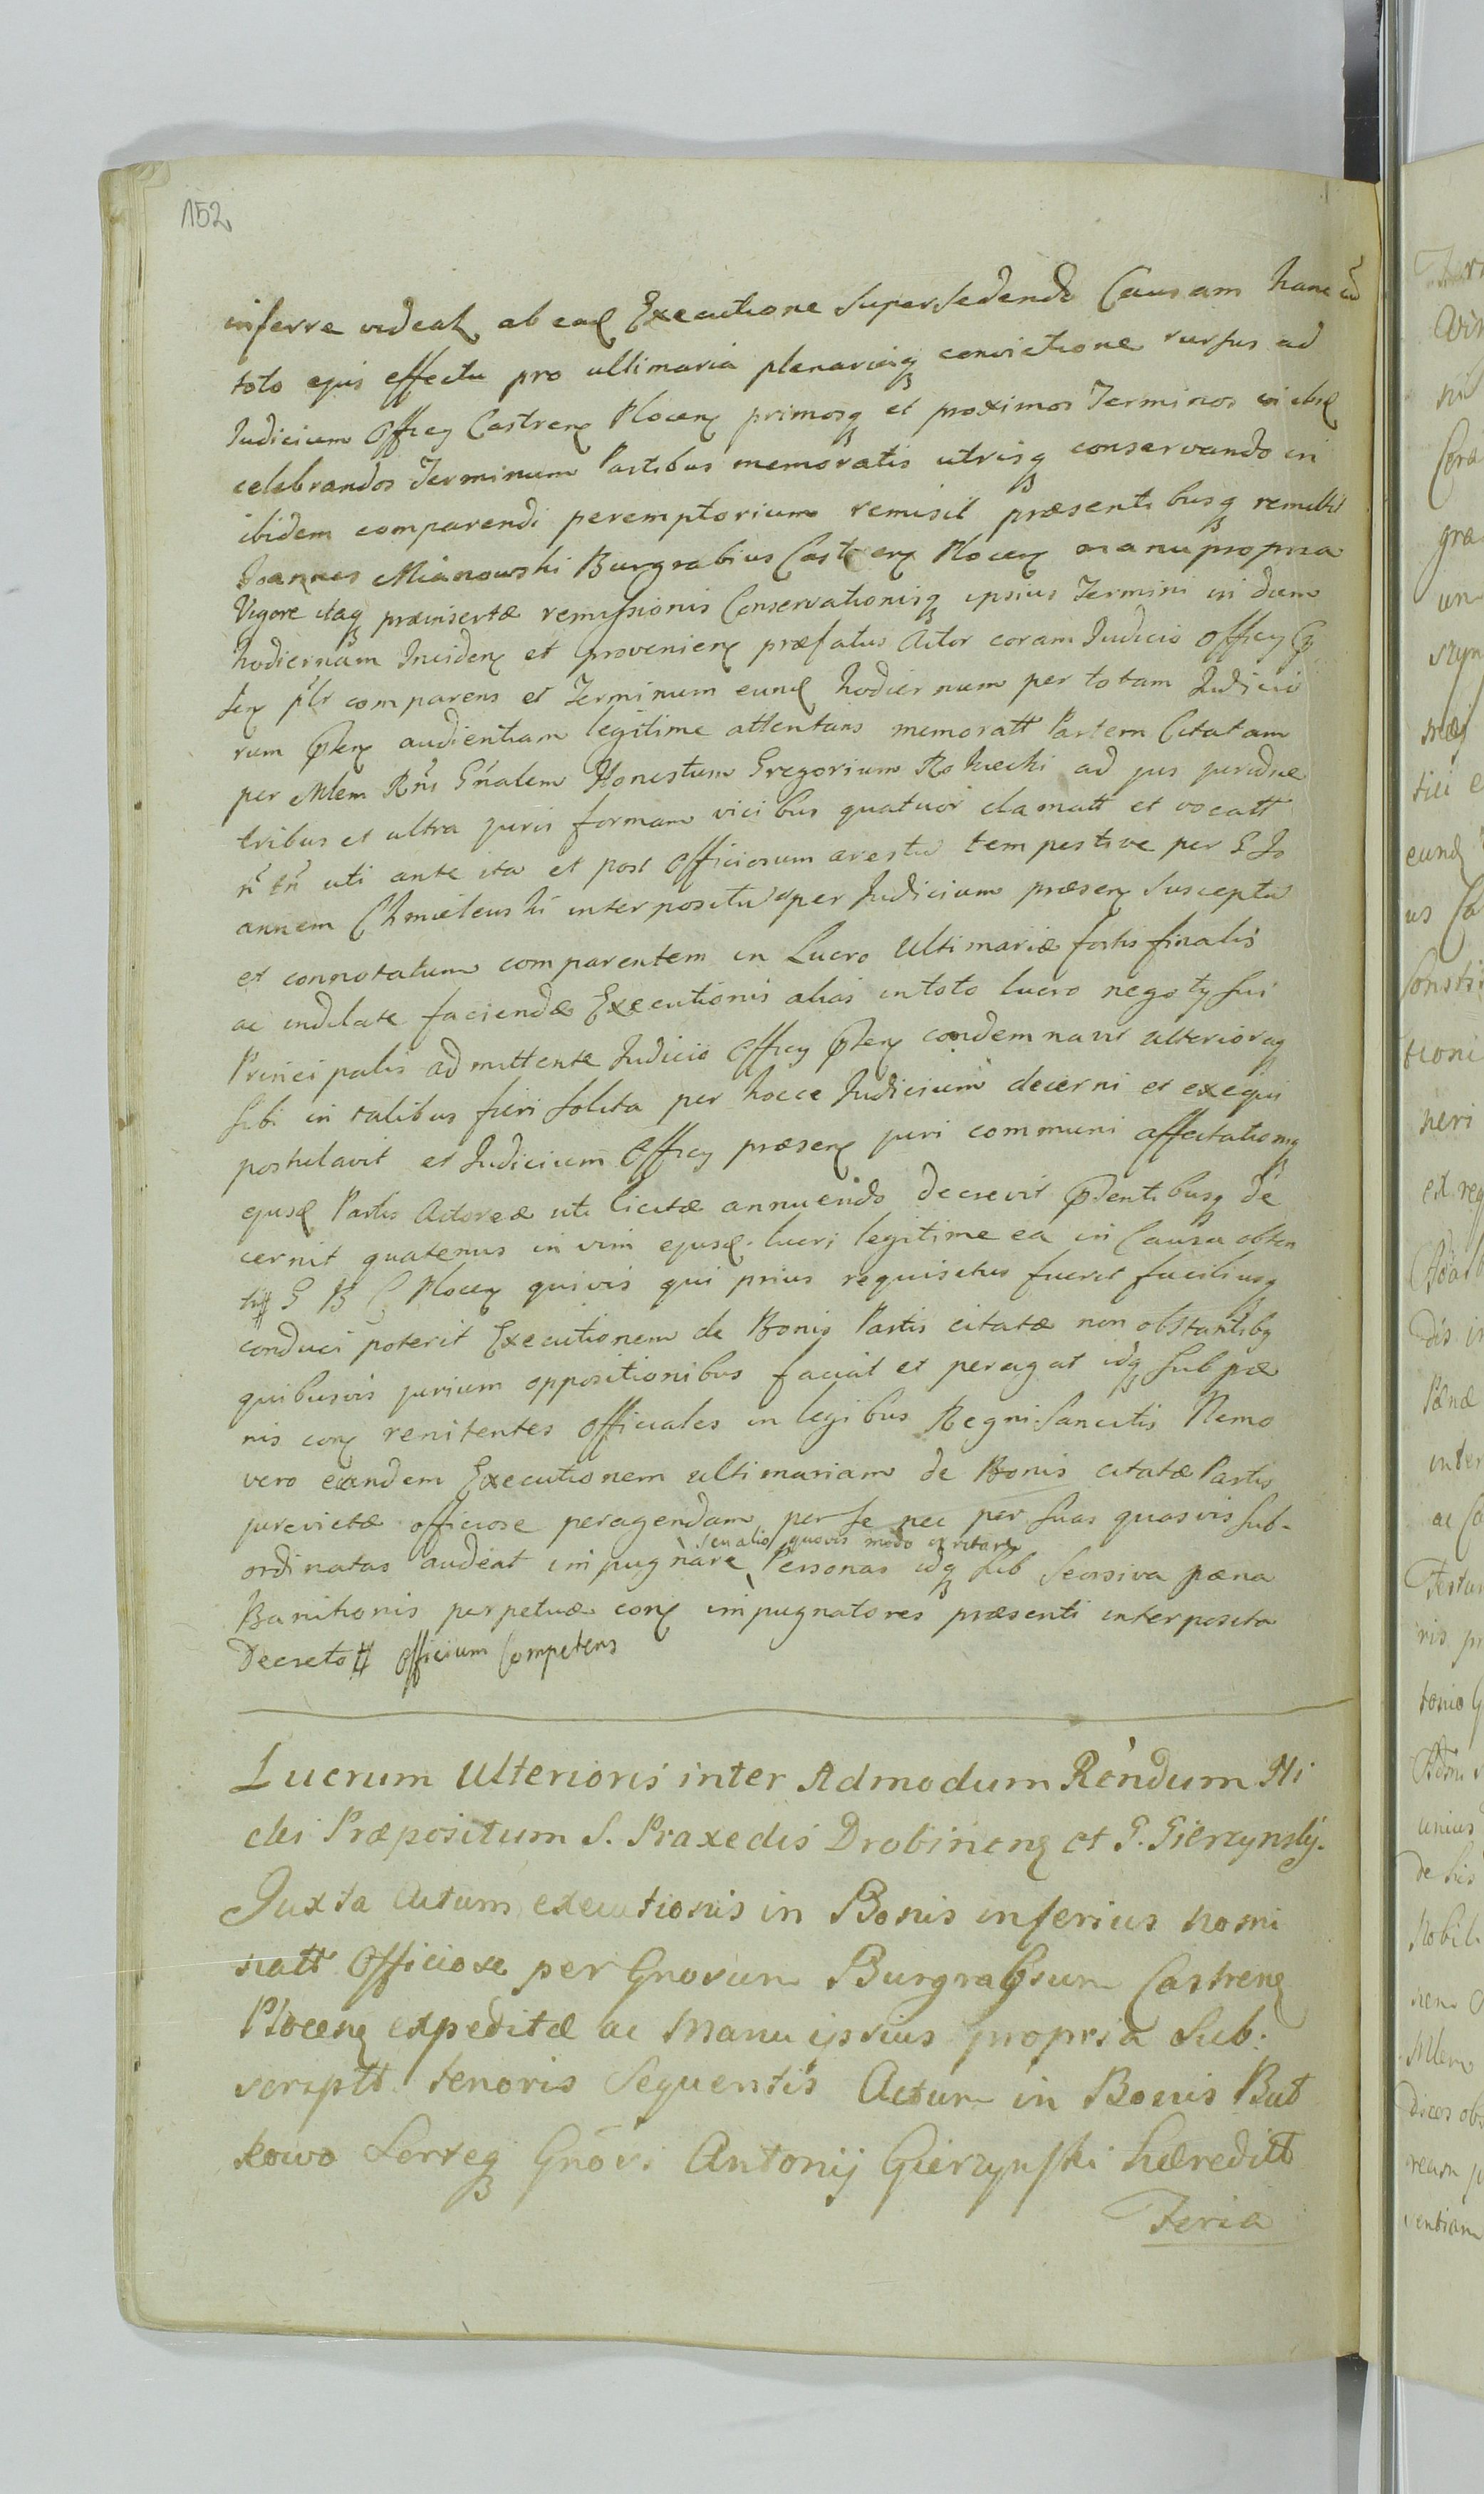 152
inferre videat ab ead Executione Supersedendo Causam hanc cũ
toto ejus effectu pro ultimaria plenariaq convictione rursus ad
Judicium Officy Castren Plocen primosq et proximos Terminos in ibid
celebrandos Terminum Partibus memoratis utrisq conservando in
ibidem comparendi peremptorium remisit præsentibusq remittit
Joannes Mianowski Burgrabius Castren Plocen manu propria
Vigore itaq præinsertæ remissionis Conservationisq ipsius Termini in diem
hodiernam Inciden et provenien præfatus Actor coram Judicio Officy
sen plr comparens et Terminum eund hodiernum per totam Judicio
rum Pten audientiam legitime attentans memoratt Partem Citatam
per Mlem Rñs Gñalem Honestum Gregorium Rokucki ad jus juridice
tribus et ultra juris formam vicibus quatuor clamatt et vocatt
ñ tñ uti ante ita et post Officiosum arestũ tempestive per G Jo
annem Chmielewski interpositũ per Judicium præsen Susceptũ
et connotatum comparentem in Lucro Ultimariæ fortis finalis
ac indilate faciendæ Executionis alias in toto lucro negoty sui
Principalis admittente Judicio Officy Pten condemnavit ulterioraq
sibi in talibus fieri solita per hocce Judicium decerni et exequi
postulavit et Judicium Officy præsen juri communi affectationiq
ejusd Partis Actoreæ uti licitæ annuendo decrevit Ptentibusq de
cernit quatenus in vim ejusd lucri legitime ea in Causa obten
ti # G B C Plocen quivis qui prius requisitus fuerit faciliusq
conduci poterit Executionem de Bonis Partis citatæ non obstantibq
quibusvis jurium oppositionibus faciat et peragat idq sub pæ
nis con renitentes Officiales in legibus Regni Sancitis Nemo
vero eandem Executionem ultimariam de Bonis citatæ Partis
jurevictæ officiose peragendam per se nec per suas quasvis sub-
seu alio quovis modo irritare
ordinatas audeat impugnare Personas idq sub Secisiva pæna
Banitionis perpetuæ con impugnatores præsenti interposita
Decreto # Officium Competens
Lucrum Ulterioris inter Admodum Rendum Ni
clei Præpositum S. Praxedis Drobinen et G. Gierzynsky.
Juxta Actum executionis in Bonis inferius nomi
natt Officiose per Gnosum Burgrabium Castren
Plocen expeditæ ac Manu ipsius propria Sub:
scriptt tenoris Sequentis Actum in Bonis But
kowo Sorteq Gnosi Antonij Gierzynski hæreditt
Feria